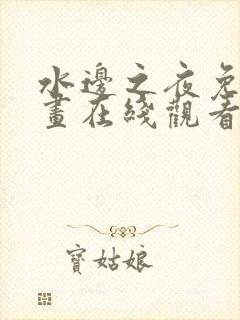 水邊之夜免
畫在綫觀看
寶姑娘